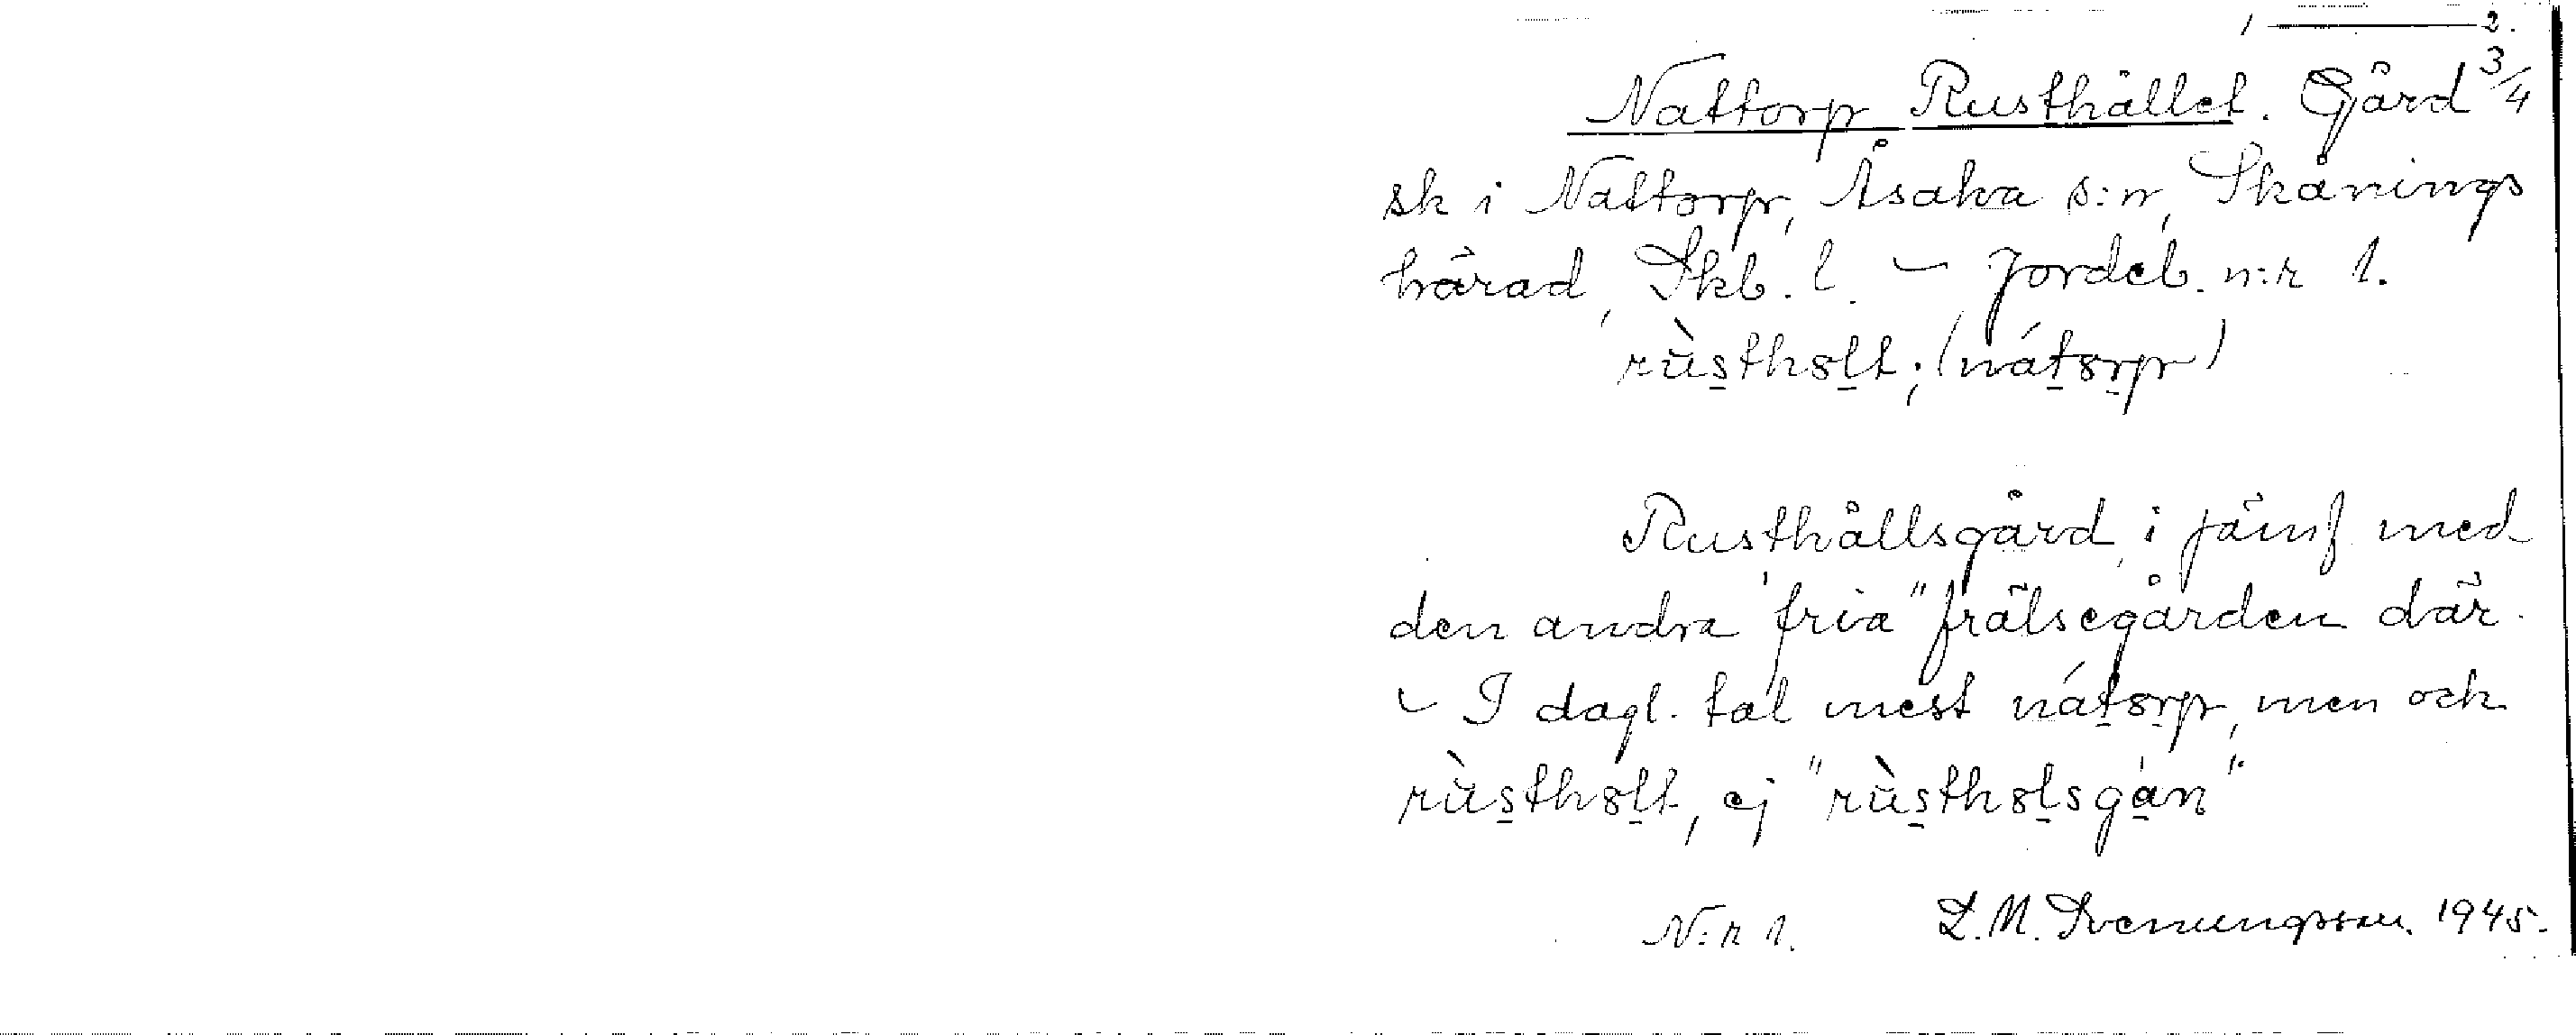 1 — 2.
Nattorp Rusthållet. Gård 3/4
sk i Nattorp, Åsaka s:n, Skånings
härad, Skb. l. – Jordeb. n:r 1.
rùsthɔlt; (nátɔrp)
Rusthållsgård, i jämf. med
den andra "fria" frälsegården där.
– I dagl. tal mest nátɔrp, men ock
rùsthɔlt, ej "rùsthɔlsgán".
N:r 1. L. M. Svenungsson. 1945.